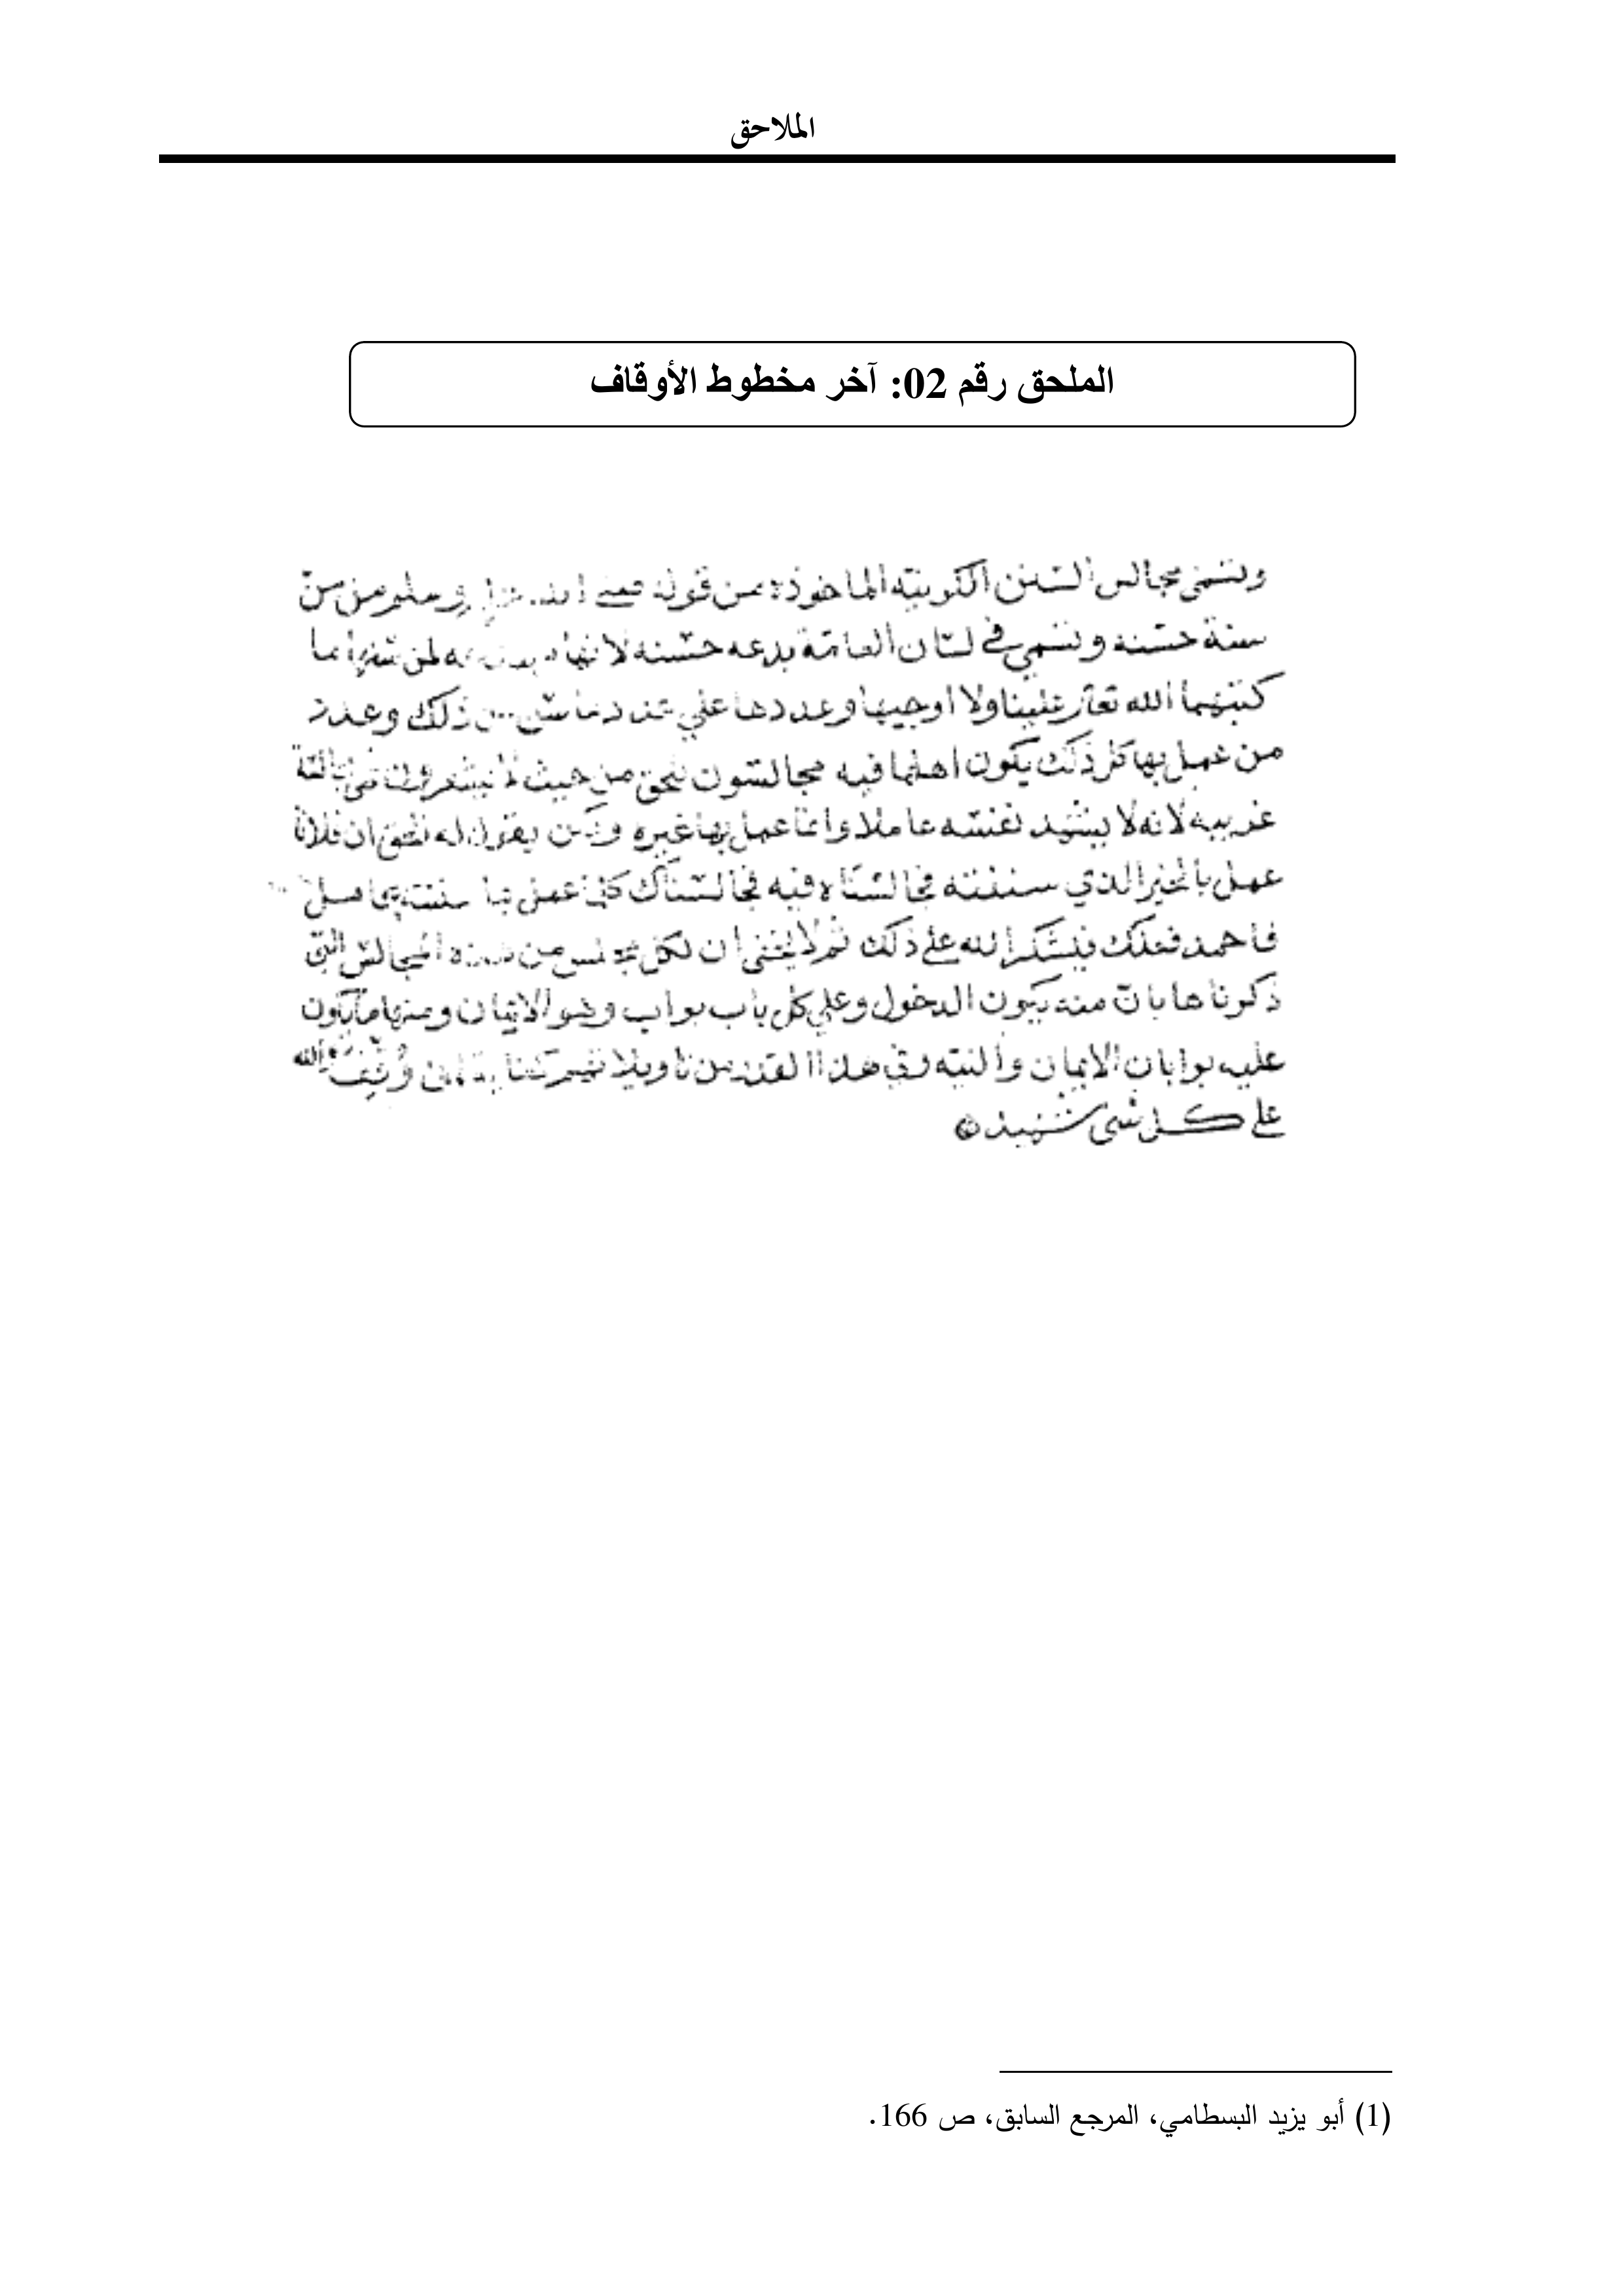 الملاحق
الملحق رقم 02: آخر مخطوط الأوقاف
وتسمى مجالس السنن الكونية الماخوذة من قوله وسلم من سن
سنة حسنة وتسمى في لسان العامة بدعه حسنه لانها لمن سنها ما
كتبها الله تعالى علينا ولا اوجبها وعددها على عدد ما سن من ذلك وعدد
من عمل بها كل ذلك يكون اهلها فيه مجالسون للحق من حيث
غريبه لانه لا يشهد نفسه عاملا وانما عمل بها غيره يقول له الحق ان فلانا
عمل بالخير الذي سننته فجالسناه فيه فجالسناك
فاحمد فعلك فيشكر الله على ذلك ثم لا يخفى ان لكل مجلس من هذه المجالس التي
ذكرناها باب منه يكون الدخول وعلى كل باب بواب وهو الايمان ومنها ما يكون
عليه بوابان الايمان والنية وفي هذا القدر من والله
على كل شى شهيد
(1) أبو يزيد البسطامي، المرجع السابق، ص 166.